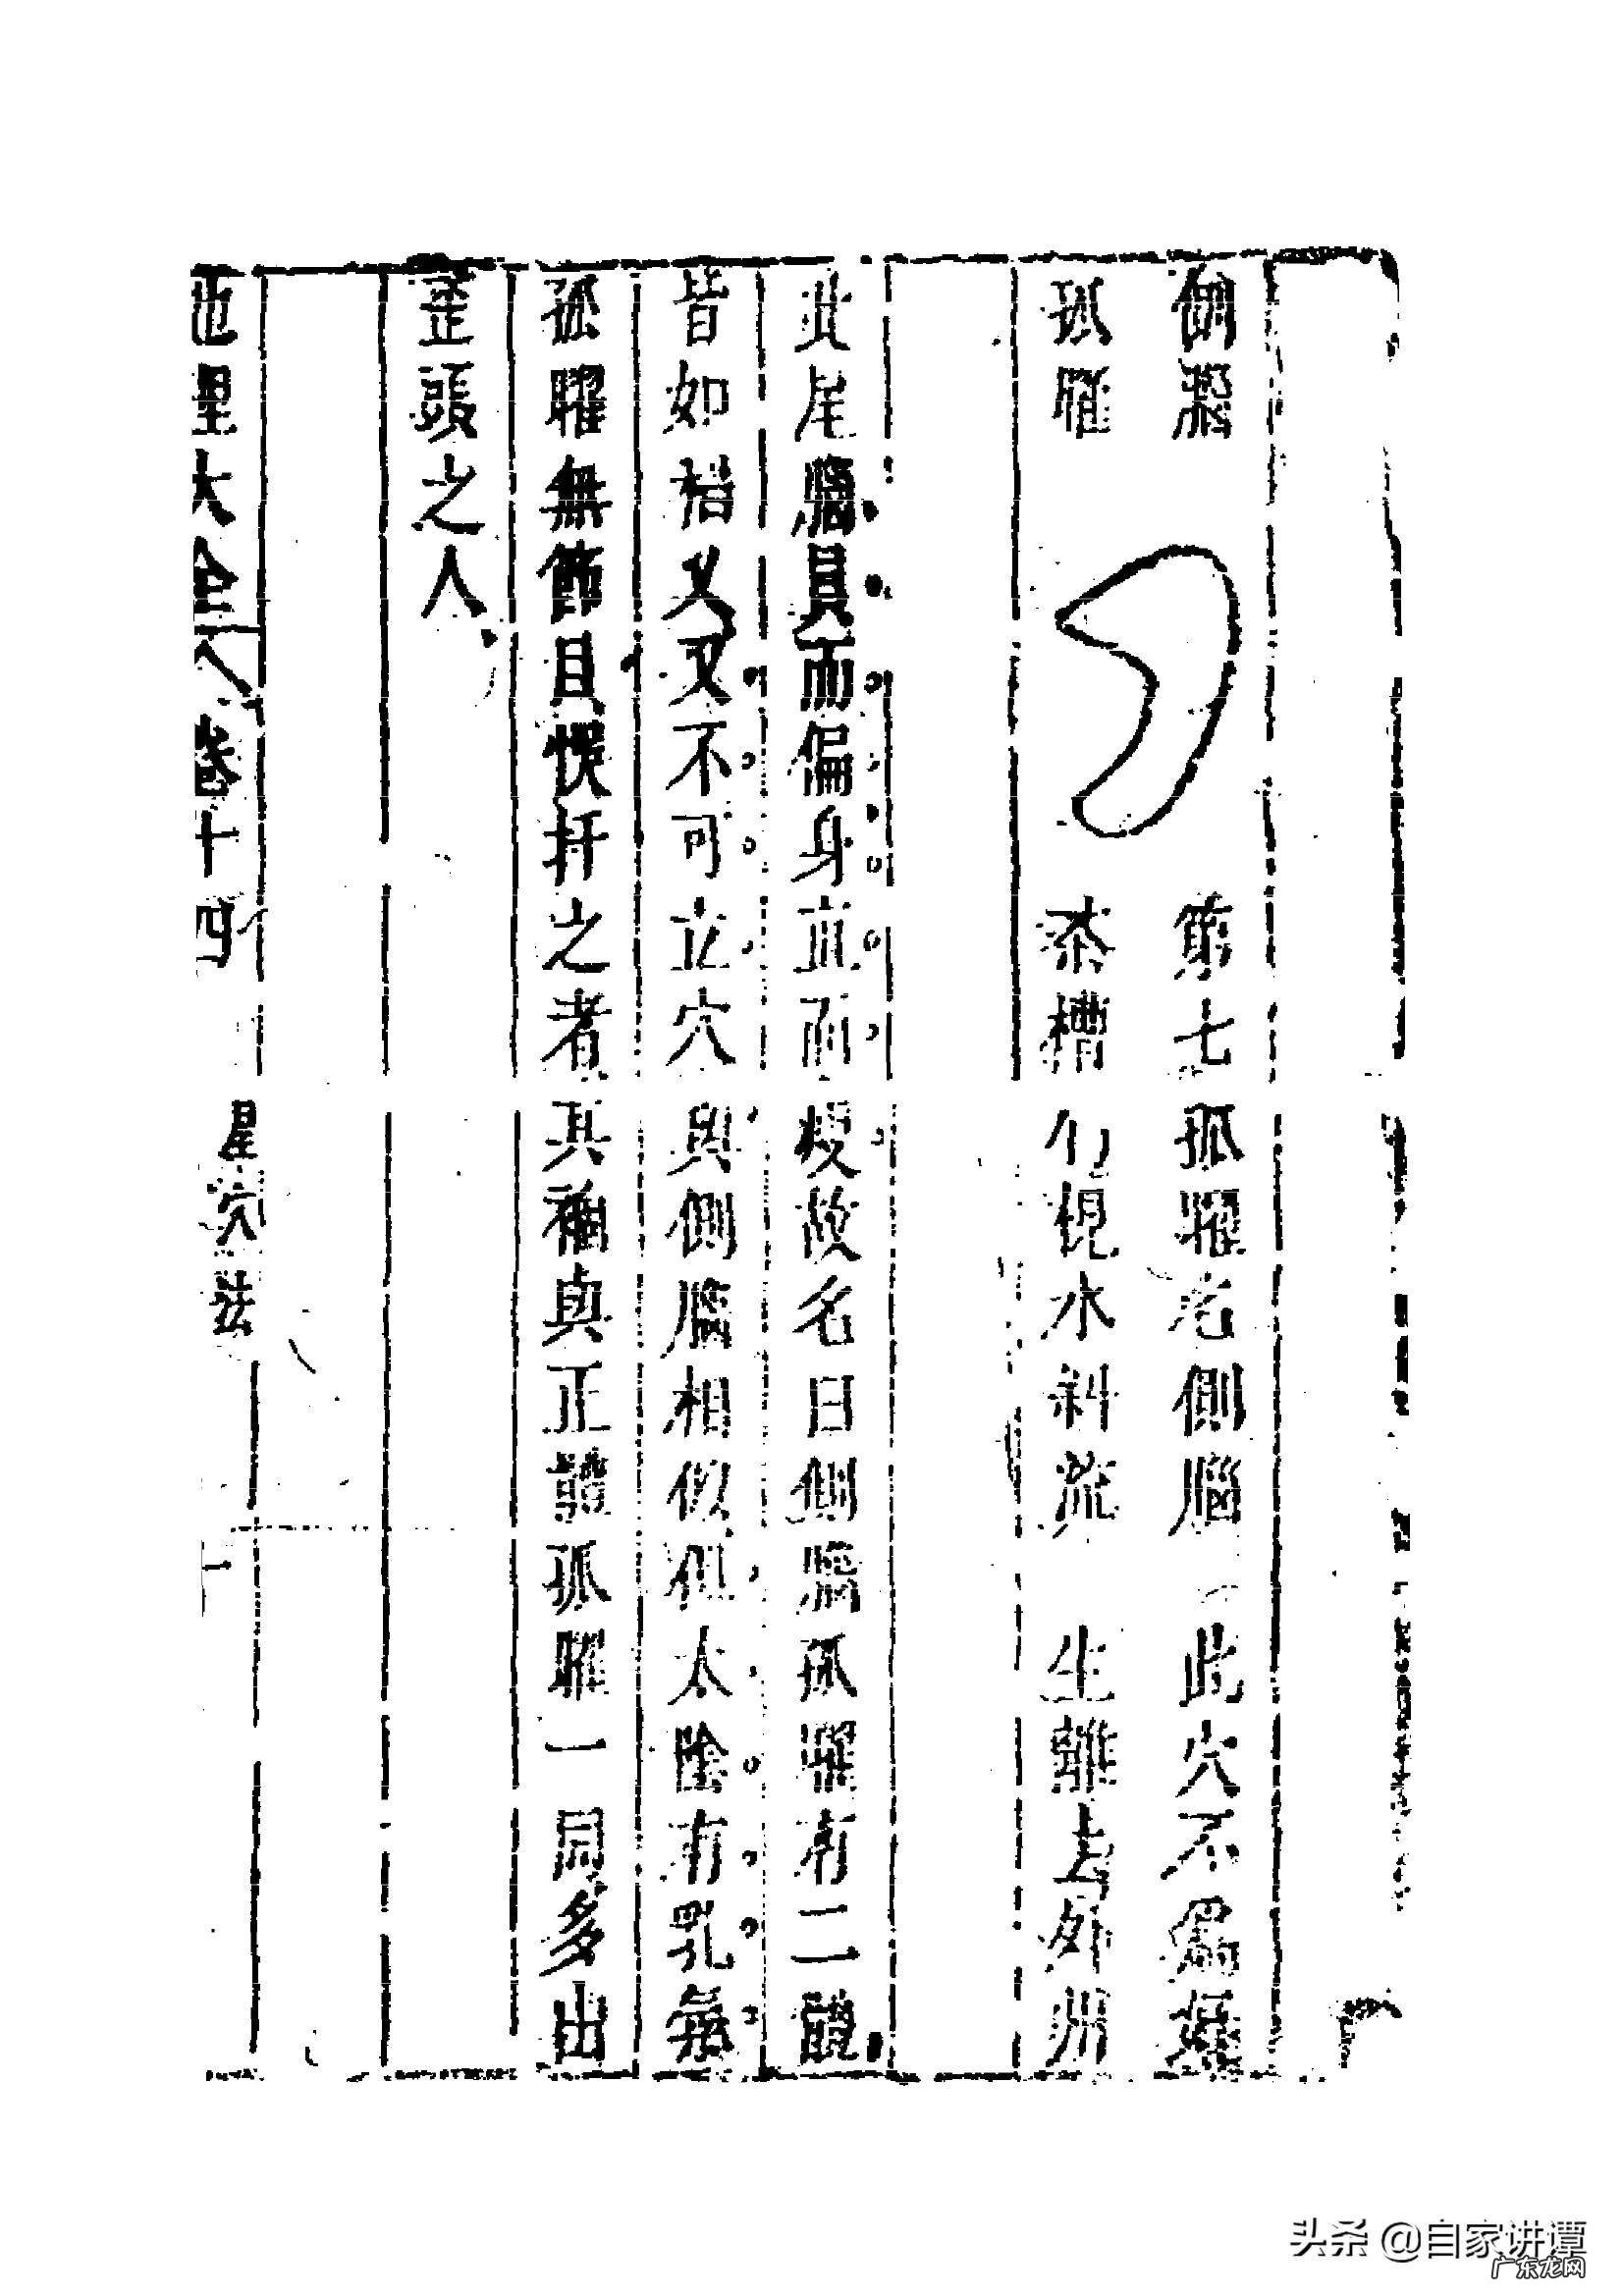 側腦 第七孤曜名側腦 此穴不爲
孤曜 茶槽 水斜流 生離 外州
此星腦具而偏身直而 故名曰側腦孤曜有二體
皆如 又又不可立穴與側腦相似但太陰有乳無
孤曜無節目悞扦之者其禍與正體孤曜一同多出
歪頭之人
地理大全 卷十四 星穴法 十一
头条 @自家讲谭
广东龙网